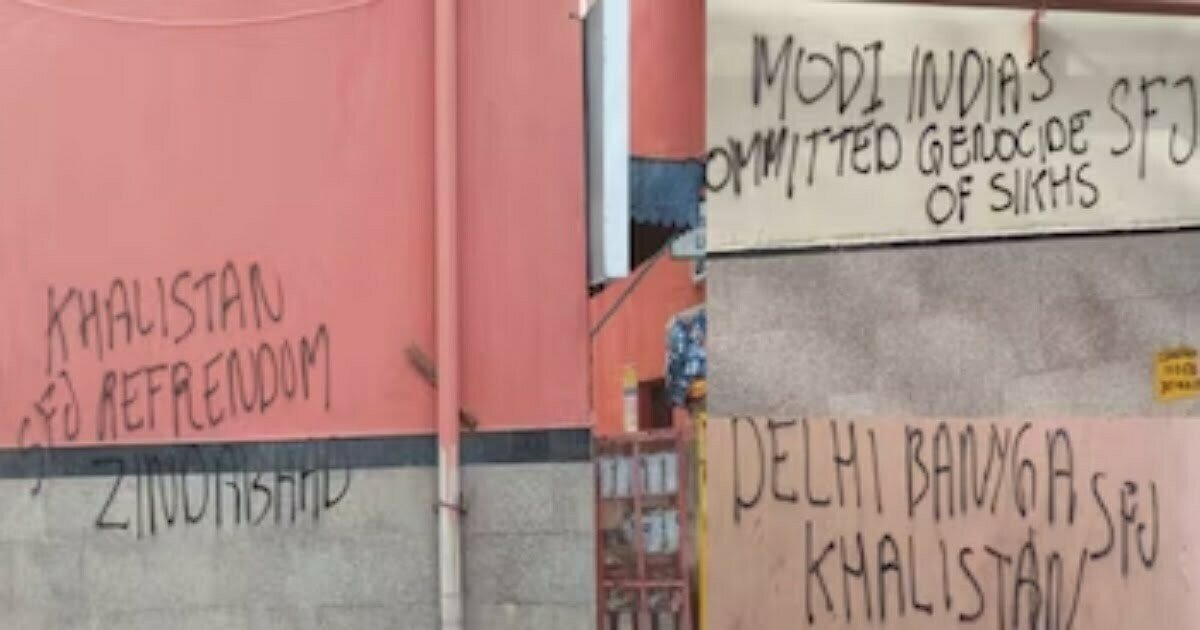 KHALISTAN
SFJ REFRENDOM
ZINDABAAD
MODI INDIA'S
OMMITTED GENOCIDE SFJ
OF SIKHS
DELHI BANYGA
SFJ
KHALISTAN